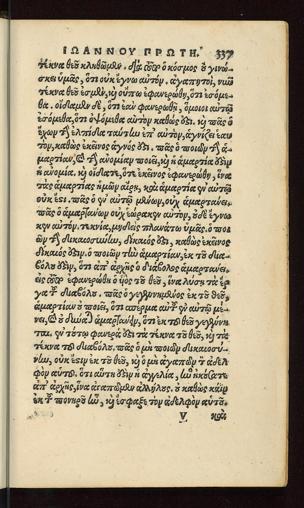 ΙΩΑΝΝΟΥ ΠΡΩΤΗ. 337
τέκνα θεοῦ κληθῶμεν. διὰ τοῦτο ὁ κόσμος οὐ γινώ-
σκει ὑμᾶς, ὅτι οὐκ ἔγνω αὐτόν. ἀγαπητοί, νῦν
τέκνα θεοῦ ἐσμὲν, καὶ οὔπω ἐφανερώθη, τί ἐσόμε-
θα. οἴδαμεν δὲ, ὅτι ἐὰν φανερωθῇ, ὅμοιοι αὐτῷ
ἐσόμεθα, ὅτι ὀψόμεθα αὐτὸν καθώς ἐστι. καὶ πᾶς ὁ
ἔχων τὴν ἐλπίδα ταύτην ἐπ' αὐτῷ, ἁγνίζει ἑαυ-
τὸν, καθὼς ἐκεῖνος ἁγνός ἐστι. πᾶς ὁ ποιῶν τὴν ἁ-
μαρτίαν, καὶ τὴν ἀνομίαν ποιεῖ, καὶ ἡ ἁμαρτία ἐστὶν
ἡ ἀνομία. καὶ οἴδατε, ὅτι ἐκεῖνος ἐφανερώθη, ἵνα
τὰς ἁμαρτίας ἡμῶν ἄρῃ, καὶ ἁμαρτία ἐν αὐτῷ
οὐκ ἔστι. πᾶς ὁ ἐν αὐτῷ μένων, οὐχ ἁμαρτάνει.
πᾶς ὁ ἁμαρτάνων οὐχ ἑώρακεν αὐτὸν, οὐδὲ ἔγνω
κεν αὐτόν. τεκνία, μηδεὶς πλανάτω ὑμᾶς. ὁ ποι
ῶν τὴν δικαιοσύνην, δίκαιός ἐστι, καθὼς ἐκεῖνος
δίκαιός ἐστιν. ὁ ποιῶν τὴν ἁμαρτίαν, ἐκ τοῦ δια-
βόλου ἐστὶν, ὅτι ἀπ' ἀρχῆς ὁ διάβολος ἁμαρτάνει.
εἰς τοῦτο ἐφανερώθη ὁ υἱὸς τοῦ θεοῦ, ἵνα λύσῃ τὰ ἔρ-
γα τοῦ διαβόλου. πᾶς ὁ γεγεννημένος ἐκ τοῦ θεοῦ,
ἁμαρτίαν οὐ ποιεῖ, ὅτι σπέρμα αὐτοῦ ἐν αὐτῷ μέ-
νει, καὶ οὐ δύναται ἁμαρτάνειν, ὅτι ἐκ τοῦ θεοῦ γεγέννη
ται. ἐν τούτῳ φανερά ἐστι τὰ τέκνα τοῦ θεοῦ, καὶ τὰ
τέκνα τοῦ διαβόλου. πᾶς ὁ μὴ ποιῶν δικαιοσύ-
νην, οὐκ ἔστιν ἐκ τοῦ θεοῦ, καὶ ὁ μὴ ἀγαπῶν τὸν ἀδελ
φὸν αὑτοῦ. ὅτι αὕτη ἐστὶν ἡ ἀγγελία, ἣν ἠκούσατε
ἀπ' ἀρχῆς, ἵνα ἀγαπῶμεν ἀλλήλους. οὐ καθὼς κάϊν
ἐκ τοῦ πονηροῦ ἦν, καὶ ἔσφαξε τὸν ἀδελφὸν αὑτοῦ.
V καὶ